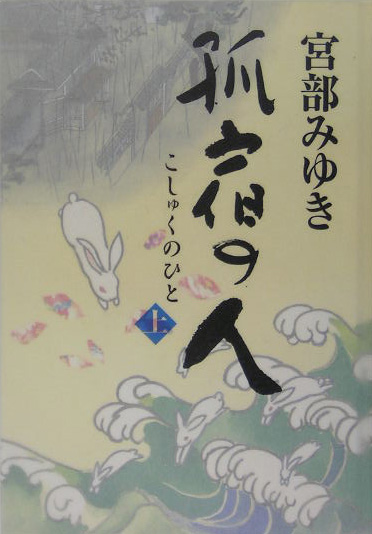 宮部みゆき
孤宿の人
こしゅくのひと
上